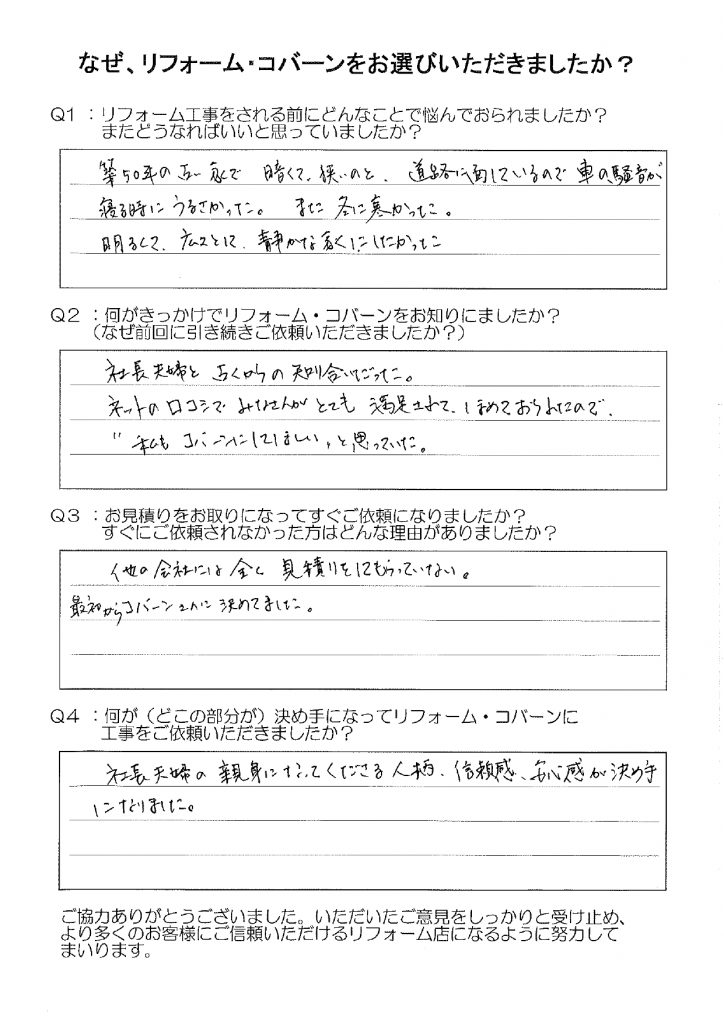 なぜ、リフォーム・コバーンをお選びいただきましたか？
Q1 ：リフォーム工事をされる前にどんなことで悩んでおられましたか？
またどうなればいいと思っていましたか？
築50年の古い家で 暗くて、狭いのと、道路に面しているので 車の騒音が
寝る時にうるさかった。 また 冬に寒かった。
明るくて、広々として、静かな家にしたかった
Q2 ：何がきっかけでリフォーム・コバーンをお知りにましたか？
（なぜ前回に引き続きご依頼いただきましたか？）
社長夫婦と 古くからの 知り合いだった。
ネットの口コミで みなさんが とても 満足されて、ほめておられたので、
"私も コバーンにしてほしい"と思っていた。
Q3 ：お見積りをお取りになってすぐご依頼になりましたか？
すぐにご依頼されなかった方はどんな理由がありましたか？
他の会社には 全く 見積りをしてもらっていない。
最初からコバーンさんに 決めてました。
Q4 ：何が（どこの部分が）決め手になってリフォーム・コバーンに
工事をご依頼いただきましたか？
社長夫婦の 親身になってくださる人柄、信頼感、安心感が決め手
になりました。
ご協力ありがとうございました。いただいたご意見をしっかりと受け止め、
より多くのお客様にご信頼いただけるリフォーム店になるように努力して
まいります。